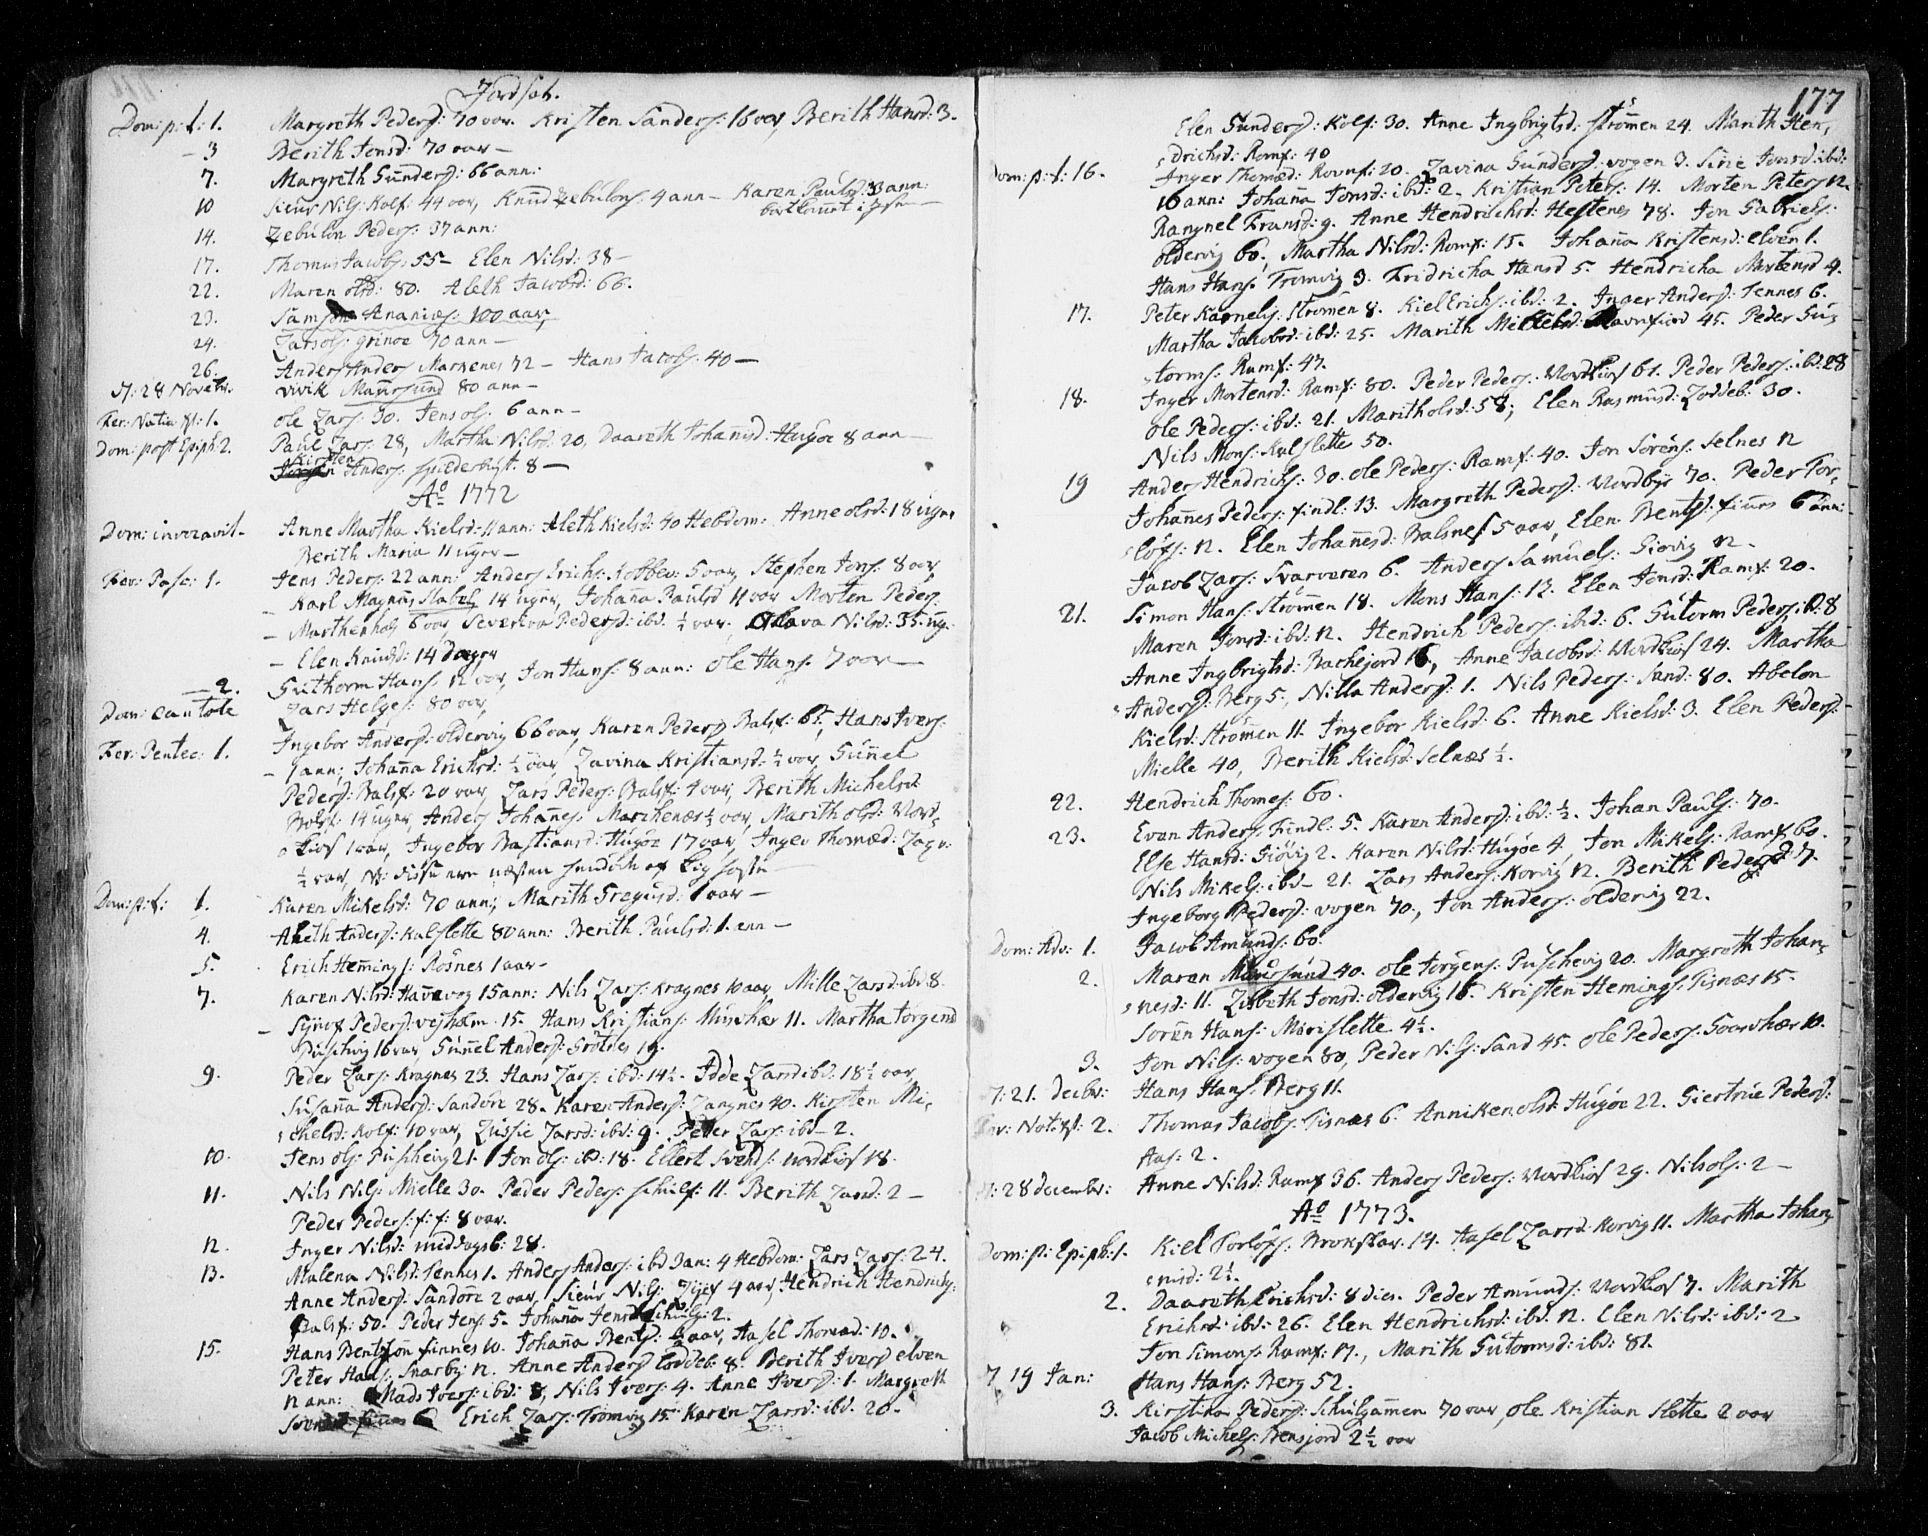 Jordsat.
Dom: p: t: 1. Margreth Peders: 70 aar. Kristen Sanders: 16 aar, Berith Hansd: 3.
– 3 Berith Jonsd: 70 aar –
7. Margreth Gunders: 66 ann:
10 Sieur Nils: Kolf: 44 aar, Knud Zebulons: 4 ann – Karen Paulsd: 33 ann:
bortkomt i
14. Zebulon Peders: 37 ann:
17. Thomas Jacobs 55 – Elen Nilsd: 38 –
22. Maren olsd: 80. Aleth Jacobsd: 66.
23. Samson Ananias: 100 aar,
24. Lars ols: grinoe 70 ann –
26. Anders Anders Marrenes 72 – Hans Jacobs: 40 –
d: 28 Novebr. vivik Maursund 80 ann –
Fer: Nativ: Xti: 1. ole Lars: 30. Jens ols: 6 ann –
Dom: post Epiph: 2. Paul Lars: 28, Martha Nilsd: 20, Daareth Johansd: Hugöe 8 ann –
Kirsten
Anders: spilderbugt: 8 –
Ao 1772
Dom: invocavit – Anne Martha Kielsd: 11 ann: Aleth Kielsd: 40 Hebdom: Anne olsd: 18 uger
Berith Maria 11 uger –
Fer: Pasc: 1. Jens Peders: 22 ann: Anders Erichs: Kobbev: 5 aar, Stephen Jons: 8 aar,
– Karl Magnus Stabel 14 uger, Johanna Paulsd 11 aar Morten Peders:
– Marthenhals 6 aar, Severina Pedersd: ibd: ½ aar. Olava Nilsd: 35 ug:
– Elen Knudsd: 14 dager
– 2. Guthorm Hans: 12 aar, Jon Hans: 8 ann: Ole Hans: 7 aar –
Dom: Cantate Lars Helges: 80 aar,
Fer: Pentec: 1. Ingebor Andersd: oldervig 66 aar, Karen Peders Balsf: 65, Hans Ivers:
– 1 ann; Johanna Erichsd: ½ aar, Lavina Kristiansd: ½ aar, Gunnel
Pedersd: Balsf: 20 aar, Lars Peders: Balsf: 4 aar, Berith Michelsd:
Balsf: 14 uger, Anders Johannes: Marchenæs ½ aar, Marith olsd: Nord,
kios 1 aar, Ingebor Bastiansd: Hugöe 17 aar, Inger Thomæd:
½ aar, NB: disse ere næsten
Dom: p: t: 1. Karen Mikelsd: 70 ann; Marith Gregusd: 1 aar –
4. Aleth Anders: Kalslette 80 ann: Berith Paulsd: 1. ann –
5. Erich Hemings: Rosnes 1 aar –
7. Karen Nilsd: Havnevog 15 ann: Nils Lars: Kragnes 10 aar, Mille Larsd: ibd: 8.
– Synof Pedersd: vejholm: 15. Hans Kristians: Misvhær 11. Martha Jorgensd
Puschvig 16 aar, Gunnel Anders: Grötnes 19.
9. Peder Lars: Kragnes 23. Hans Lars: ibd: 14½. Adde Larsd ibd: 18½ aar,
Susanna Anders: Sandöre 28. Karen Anders: Langnes 40. Kirsten Mi,
chelsd: Kolf: 10 aar, Lussie Larsd: ibd: 9. Peter Lars: ibd – 2.
10. Jens ols: Puschvig 21. Jon ols: ibd: 18. Ellert Svends: nordkios 18.
11. Nils Nils: Mielle 30. Peder Peders: Schulf: 11. Berith Larsd: 2 –
Peder Peders: f: f: 8 aar.
12. Inger Nilsd: middagsb: 28.
13. Malena Nilsd: Tennes 1. Anders Anders: ibd Jan: 4 Hebdom: Lars Lars: 24.
Anne Anders: Sandöre 2 aar, Sieur Nils: 4 aar, Hendrich Hendrichs:
Balsf: 50. Peder Jens: 5. Johanna Jensd: Schulg: 2.
15. Hans Bentzon finnes 10. Johanna Bentsd: ½ aar, Aasel Thomæd: 10.
Peter Hans: Snarby 12. Anne Anders loddeb: 8. Berith Ivers elven
12 ann: Mads Ivers: ibd: 8, Nils Ivers: 4. Anne Ivers: 1. Margreth
6 Erich Lars: Tromvig 15. Karen Larsd: ibd: 20.
177
Elen Gundersd: Kolf: 30. Anne Ingbrigtsd: Strömen 24. Marith Hen,
drichsd: Ramf: 40
Dom: p: t: 16. Inger Thomæd: Ravnf: 20. Lavina Gundersd: vogen 3. Sirie Jonsd: ibd:
16 ann: Johanna Jonsd: ibd: 2. Kristian Peters: 14. Morten Peters 12.
Rangnel Fransd: 9. Anne Hendrichsd: Hestenes 78. Jon Gabriels:
oldervig 60, Martha Nilsd: Ramf: 15. Johanna Kristensd: elven 1.
Hans Hans: Tromvig 3. Fridricha Hansd 5. Hendricha Mortensd 4.
17. Peter Kornels: Strömen 8. Kiel Erichs: ibd: 2. Inger Anders: Tennes 6.
Martha Jacobsd: ibd: 25. Marith Michelsd: Ravnfiord 45. Peder Gu,
torms: Ramf: 47.
18. Inger Mortensd: Ramf: 80. Peder Peders: Nordkios 61. Peder Peders: ibd: 28
Ole Peders: ibd: 21. Marith olsd: 58; Elen Rasmusd: Loddeb: 30.
Nils Mons: Kalslette 50.
19 Anders Hendrichs: 30. ole Peders: Ramf: 40. Jon Sörens: Selnes 12
Johannes Peders: findl: 13. Margreth Peders: Nordbye 70. Peder Tor,
löfs: 12. Elen Johannesd: Balsnes 5 aar, Elen Bents: finnes 6 ann:
Jacob Lars: Svarveren 6. Anders Samuels: Giövig 12 –
21. Simon Hans: Strömmen 18. Mons Hans: 12. Elen Jonsd: Ramf: 20.
Maren Jonsd: ibd: 12. Hendrich Peders: ibd: 6. Gutorm Peders: ibd: 8
Anne Ingbrigtsd: Bachejord 16, Anne Jacobsd: Nordkios 24. Martha
Andersd: Berg 5, Nilla Anders: 1. Nils Peders: Sand: 80. Abelon
Kielsd: Strömen 11. Ingebor Kielsd: 6. Anne Kielsd: 3. Elen Peders:
Mielle 40, Berith Kielsd: Selnæs ½.
22. Hendrich Thomes: 60.
23. Evan Anders: Findl: 5. Karen Anders: ibd: ½. Johan Pauls: 70.
Else Hansd: Giövig 2. Karen Nilsd: Hugöe 4, Jon Mikels: Ramf 60.
Nils Mikels: ibd – 21. Lars Anders: Korvig 12. Berith Pedersd 7.
Ingeborg Pedersd: vogen 70., Jon Anders: oldervig 22.
Dom: Adv: 1. Jacob Amunds: 60.
2. Maren Maursund 40. ole Jörgens: Puschevig 20. Margreth Johan,
nesd: 11. Lisbeth Jonsd: oldervig 16. Kristen Hemings: Tisnæs 15.
Sören Hans: Mörislette 4½.
3. Jon Nils: vogen 80, Peder Nils: Sand 45. ole Peders: Goarvhær 10.
d: 21. decbr: Hans Hans: Berg 11.
Fer: Nat: Xt: 2. Thomas Jacobs: Tisnæs 6. Anniken olsd: Hugöe 22. Giertrue Pedersd:
Aas: 2.
d: 28 decembr: Anne Nilsd: Ramf 36. Anders Peders: Nordkios 29. Nils ols: 2 –
Ao 1773.
Dom: p: Epiph: 1. Kiel Torlöfs: Brokskar. 14. Aasel Larsd: Korvig 11. Martha Johan,
nisd: 2½.
2. Daareth Erichsd: 8 dies. Peder Amunds: Nordkios 7. Marith
Erichsd: ibd: 26. Elen Hendrichsd: ibd: 12. Elen Nilsd: ibd: 2
Jon Simons: Ramf: 17., Marith Gutormsd: ibd: 81.
d 19 Jan: Hans Hans: Berg 52.
3. Kirstina Pedersd: Schulgammen 70 aar, ole Kristian Slette 2 aar
Jacob Michels: Bensjord 2½ aar